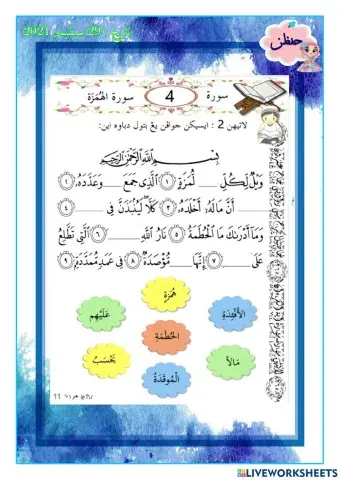 تاريخ : 29 سيڤتيمبر 2021
حفظن
سورة 4 سورة الهُمَزَة
لاتيهن 2 : ايسيكن جواڤن يڠ بتول دباوه اين:
بِسْمِ اللَّهِ الرَّحْمَٰنِ الرَّحِيمِ
وَيْلٌ لِكُلِّ ____ لُمَزَةٍ ١ الَّذِى جَمَعَ ____ وَعَدَّدَهُ، ٢
____ أَنَّ مَالَهُ، أَخْلَدَهُ، ٣ كَلَّا لَيُنۢبَذَنَّ فِى ____ ٤
وَمَا أَدْرَىٰكَ مَا الْحُطَمَةُ ٥ نَارُ اللَّهِ ____ ٦ الَّتِى تَطَّلِعُ
عَلَى ____ ٧ إِنَّهَا ____ مُّؤْصَدَةٌ ٨ فِى عَمَدٍ مُّمَدَّدَةٍ ٩
هُمَزَةٍ
عَلَيْهِم
الأَفْئِدَةِ
الحُطَمَةِ
يَحْسَبُ
مَالاً
الْمُوقَدَةُ
11
LIVEWORKSHEETS